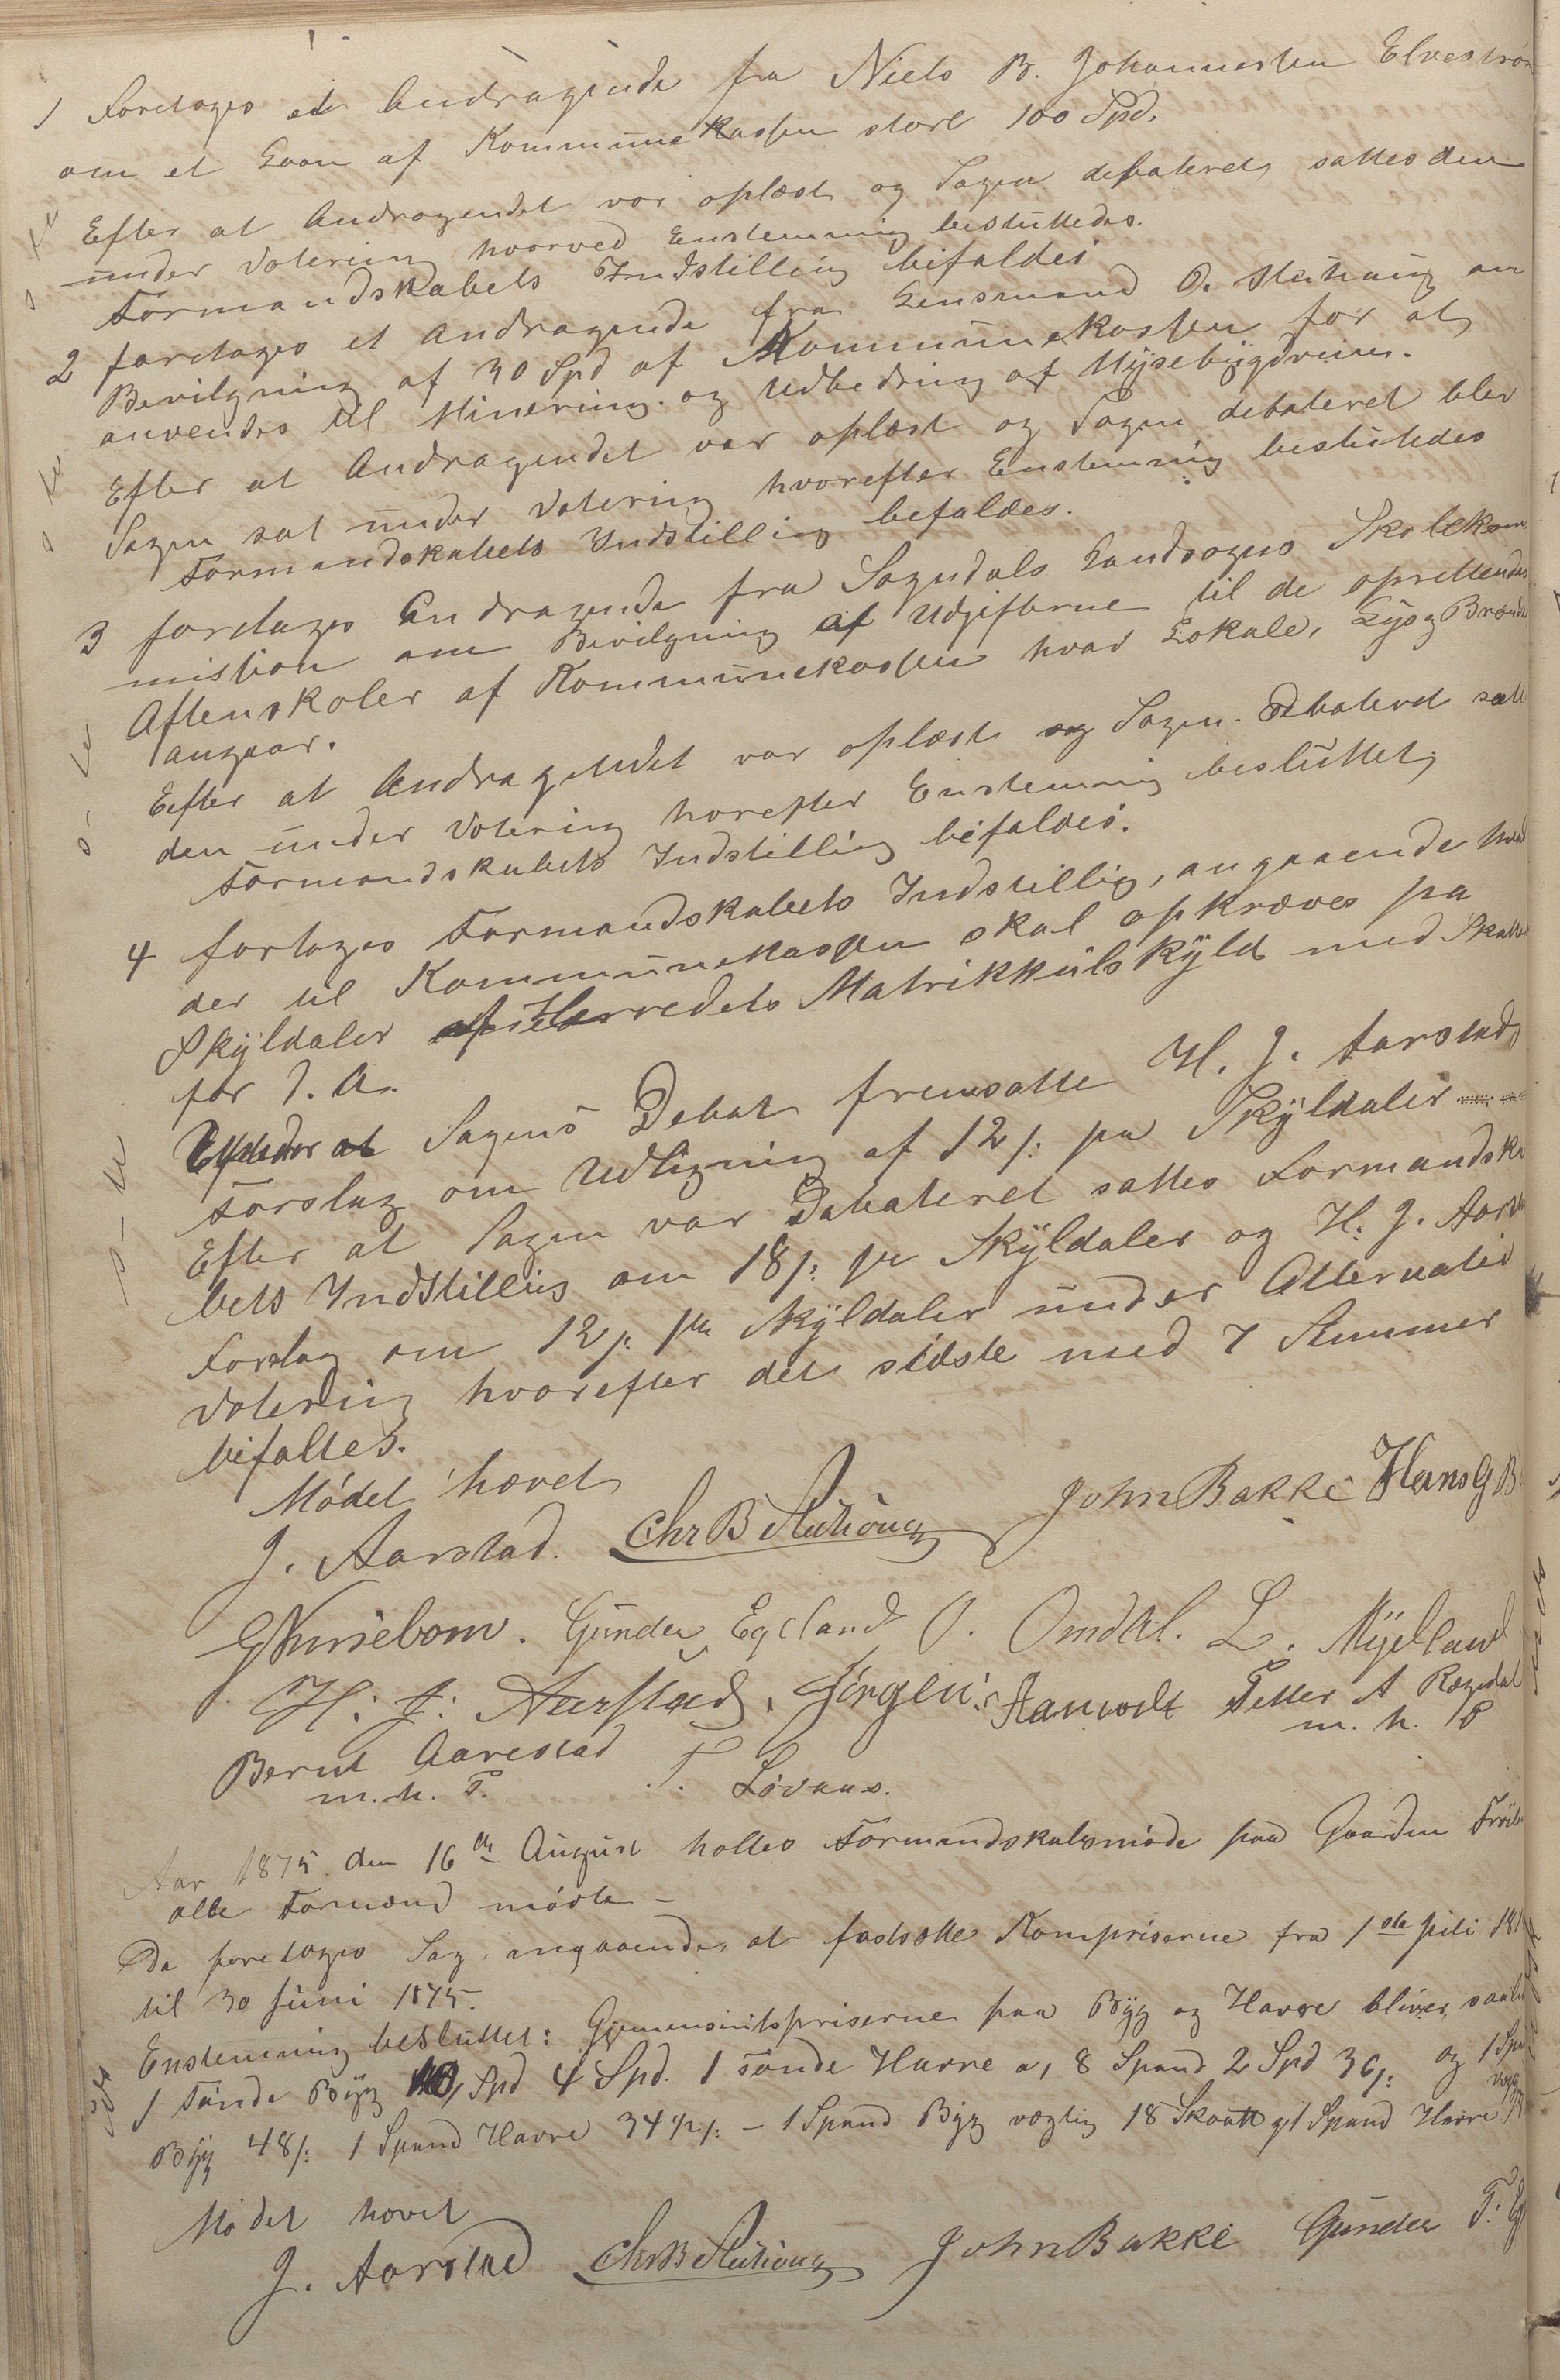 1 Foretoges et Andragende fra Niels B. Johannesen Elvestrøm
om et Laan af Kommunekassen stort 100 Spd.
Efter at Andragendet var oplæst og Sagen debateret, sattes den
under Votering hvorved Enstemmig besluttedes.
Formandskabets Indstilling bifaldes
2 foretoges et Andragende fra Lensmand O. Stuhaug om
Bevilgning af 30 Spd af Kommunekassen for at
anvendes til Minering og Udbedring af Mysebygdveien.
Efter at Andragendet var oplæst og Sagen debateret blev
Sagen sat under Votering hvorefter Enstemmig besluttedes
Formandskabets Indstilling befaldes.
3 foretoges Andragende fra Sogndals Landsogns Skolekom
mission om Bevilgning af Udgifterne til de oprettendes
Aftenskoler af Kommunekassen hvad Lokale, Lys og Brænde
angaar.
Eefter at Andragendet var oplæst og Sagen Debateret satt
den under Votering horefter Enstemmig besluttet,
Formandskabets Indstilling bifaldes.
4 fortoges Formandskabets Indstillig, angaaende hvad
der til Kommunekassen skal opkræves pa
Skyldaler af Herredets Matrikkulskyld med Skatte
for d. A.
Under Sagens Debat fremsatte H. J. Aarstad,
Forslag om Udligning af 12 s: pa Skyldaler
Efter at Sagen var Debateret sattes Formandska
bets Indstillig om 18 s: pr Skyldaler og H. J. Aars
Forslag om 12 s: pr Skyldaler under Alternativ
Votering hvorefter det sidste med 7 Stemmer
bifaltes.
Mødet hævet
J. Aarstad. Chr B Stuhoug John Bakke Hans G B
Gunder Egeland O. Omdal. L. Myelland
H. J. Aarstad, Jørgen Petter A Rægedal
m. h. P
Bernt Aarestad T. Løvaas.
m. h. P.
Aar 1875 den 16de August holtes Formandskabsmøde paa Gaarden Frøi
alle Formænd mødte –
Da foretoges Sag angaaende at fastsætte Kornpriserne fra 1ste juli 18
til 30 Juni 1875.
Enstemmig besluttet: Gjennemsnitspriserne paa Byg og Havre bliver saal
1 Tønde Byg Spd 4 Spd. 1 Tønde Havre a, 8 Spand 2 Spd 36 s: og 1 Spa
Byg 48 s: 1 Spand Havre 34 1/2 s: – 1 Spand Byg vægtig 18 Skaalt 1 Spand Havre
Mødet hævet
J. Aarstad Chr B Stuhoug John Bakke Gunder T. Eg